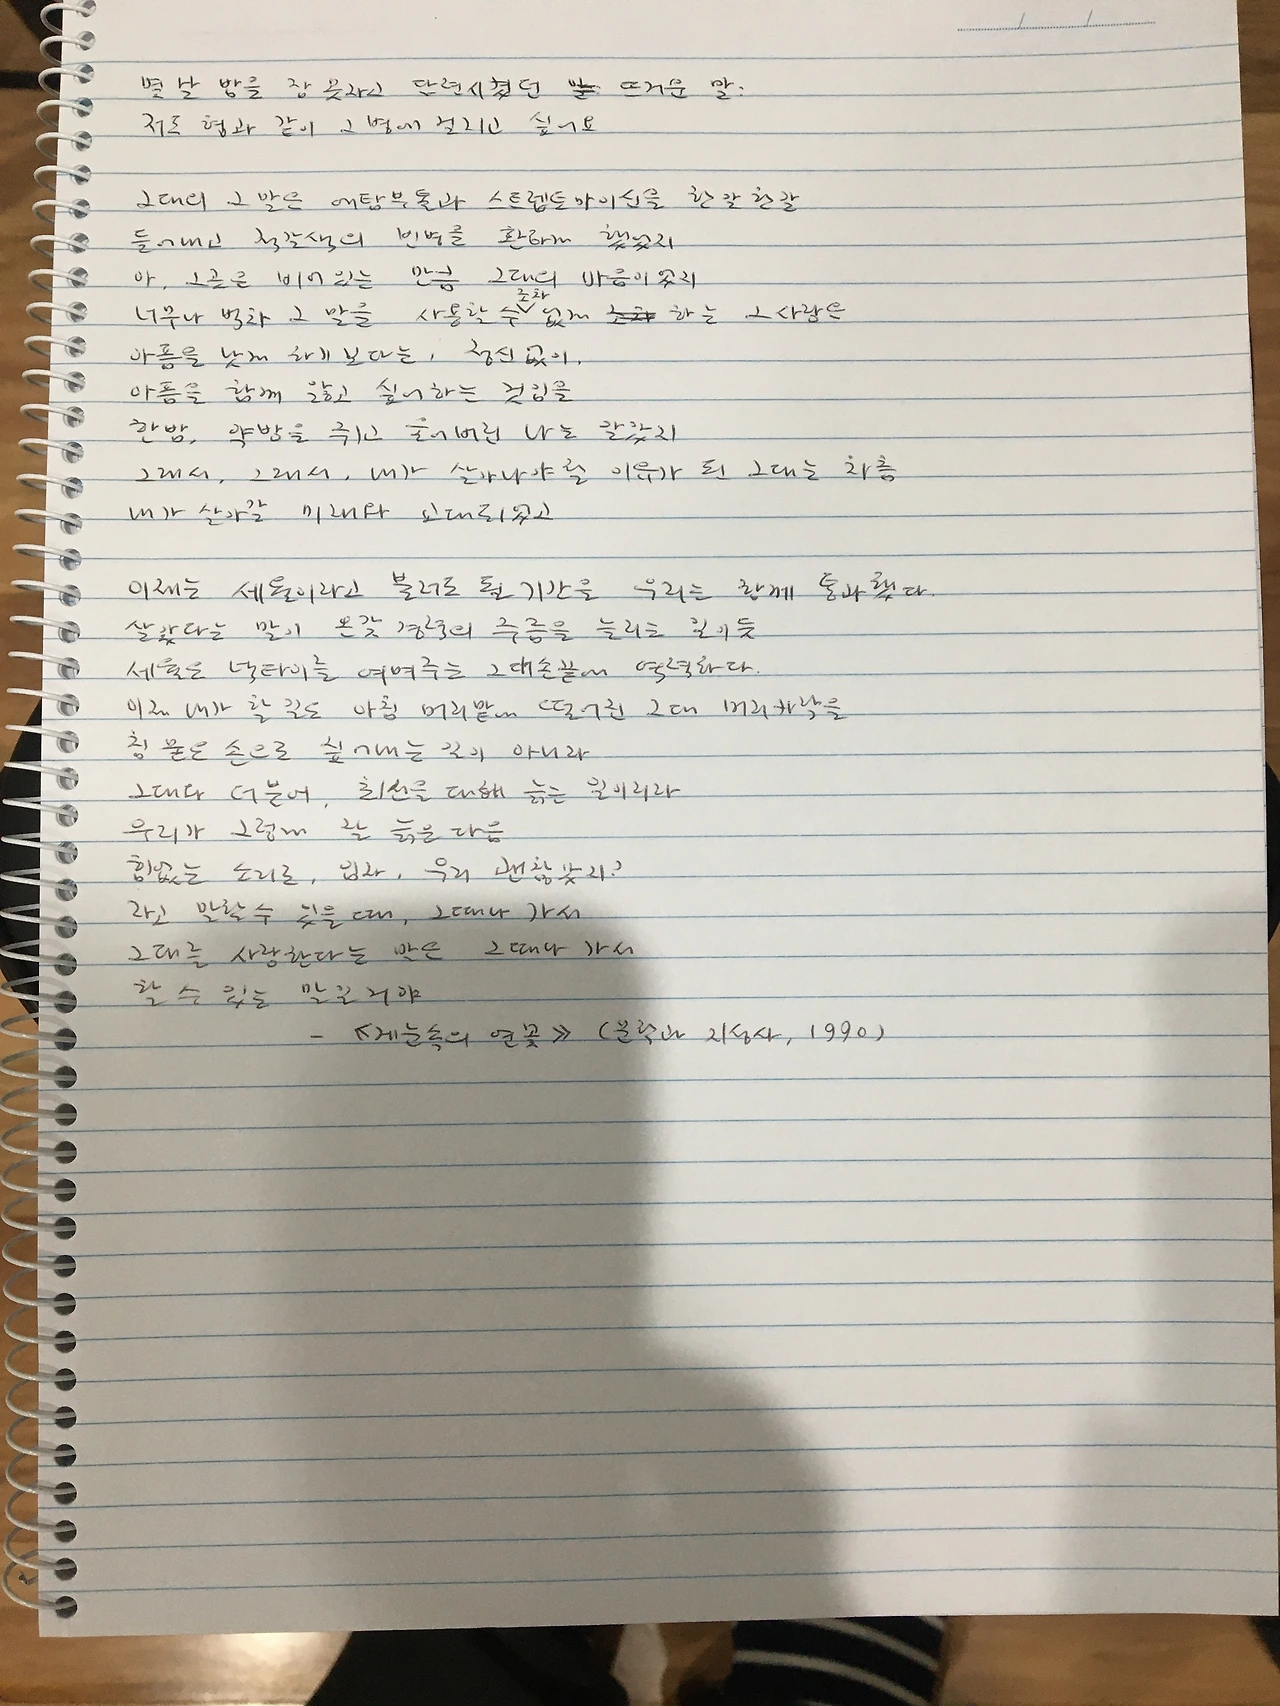 몇날 밤을 잠 못자고 단련시켰던 뜨거운 말:
저도 형과 같이 그 병에 걸리고 싶어요
그대의 그 말은 에탐부톨과 스트렙토마이신을 한알한알
들어내고 적갈색의 빈병을 환하게 했었지
아, 그곳은 비어있는 만큼 그대의 마음이었지
너무나 벅차 그 말을 사용할 수조차 없게 하는 그 사랑은
아픔을 낫게 하기보다는, 정신없이,
아픔을 함께 앓고 싶어하는 것임을
한밤, 약병을 쥐고 울어버린 나는 알았지
그래서, 그래서, 내가 살아나야 할 이유가 된 그대는 차츰
내가 살아갈 미래와 교대되었고
이제는 세월이라고 불러도 될 기간을 우리는 함께 통과했다.
살았다는 말이 온갖 경력의 주름을 늘리는 일이듯
세월은 넥타이를 여며주는 그대 손끝에 역력하다.
이제 내가 할 일은 아침 머리맡에 떨어진 그대 머리카락을
침 묻은 손으로 짚어내는 일이 아니라
그대와 더불어, 최선을 다해 늙는 일이리라
우리가 그렇게 잘 늙은 다음
힘없는 소리로, 임자, 우리 괜찮았지?
라고 말할 수 있을 때, 그때나 가서
그대를 사랑한다는 말은 그때나 가서
할 수 있는 말일거야
- 《게눈속의 연꽃》 (문학과 지성사, 1990)